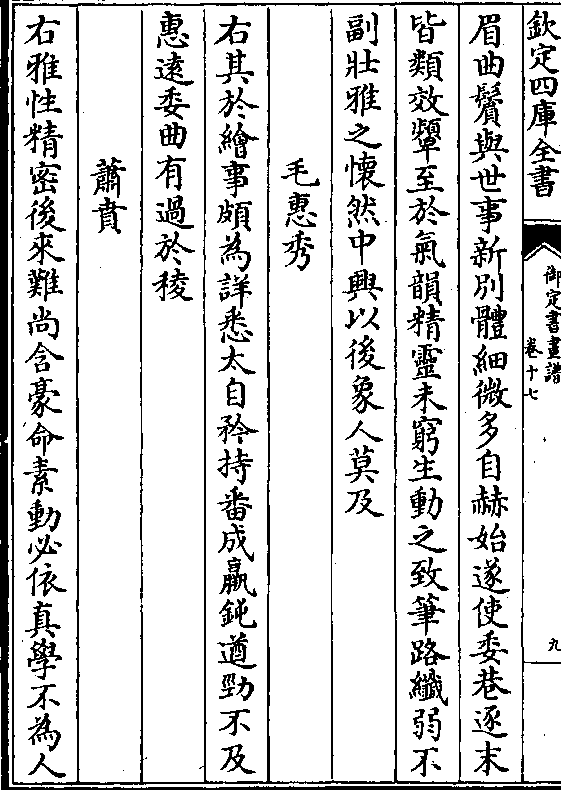 欽定四庫全書
御定書畫譜
卷十七
九
眉曲鬢與世事新別體細微多自赫始遂使委巷逐末
皆類效顰至於氣韻精靈未窮生動之致筆路纖弱不
副壯雅之懷然中興以後象人莫及
毛惠秀
右其於繪事頗為詳悉太自矜持番成羸鈍遒勁不及
惠遠委曲有過於稜
蕭賁
右雅性精密後來難尚含豪命素動必依真學不為人